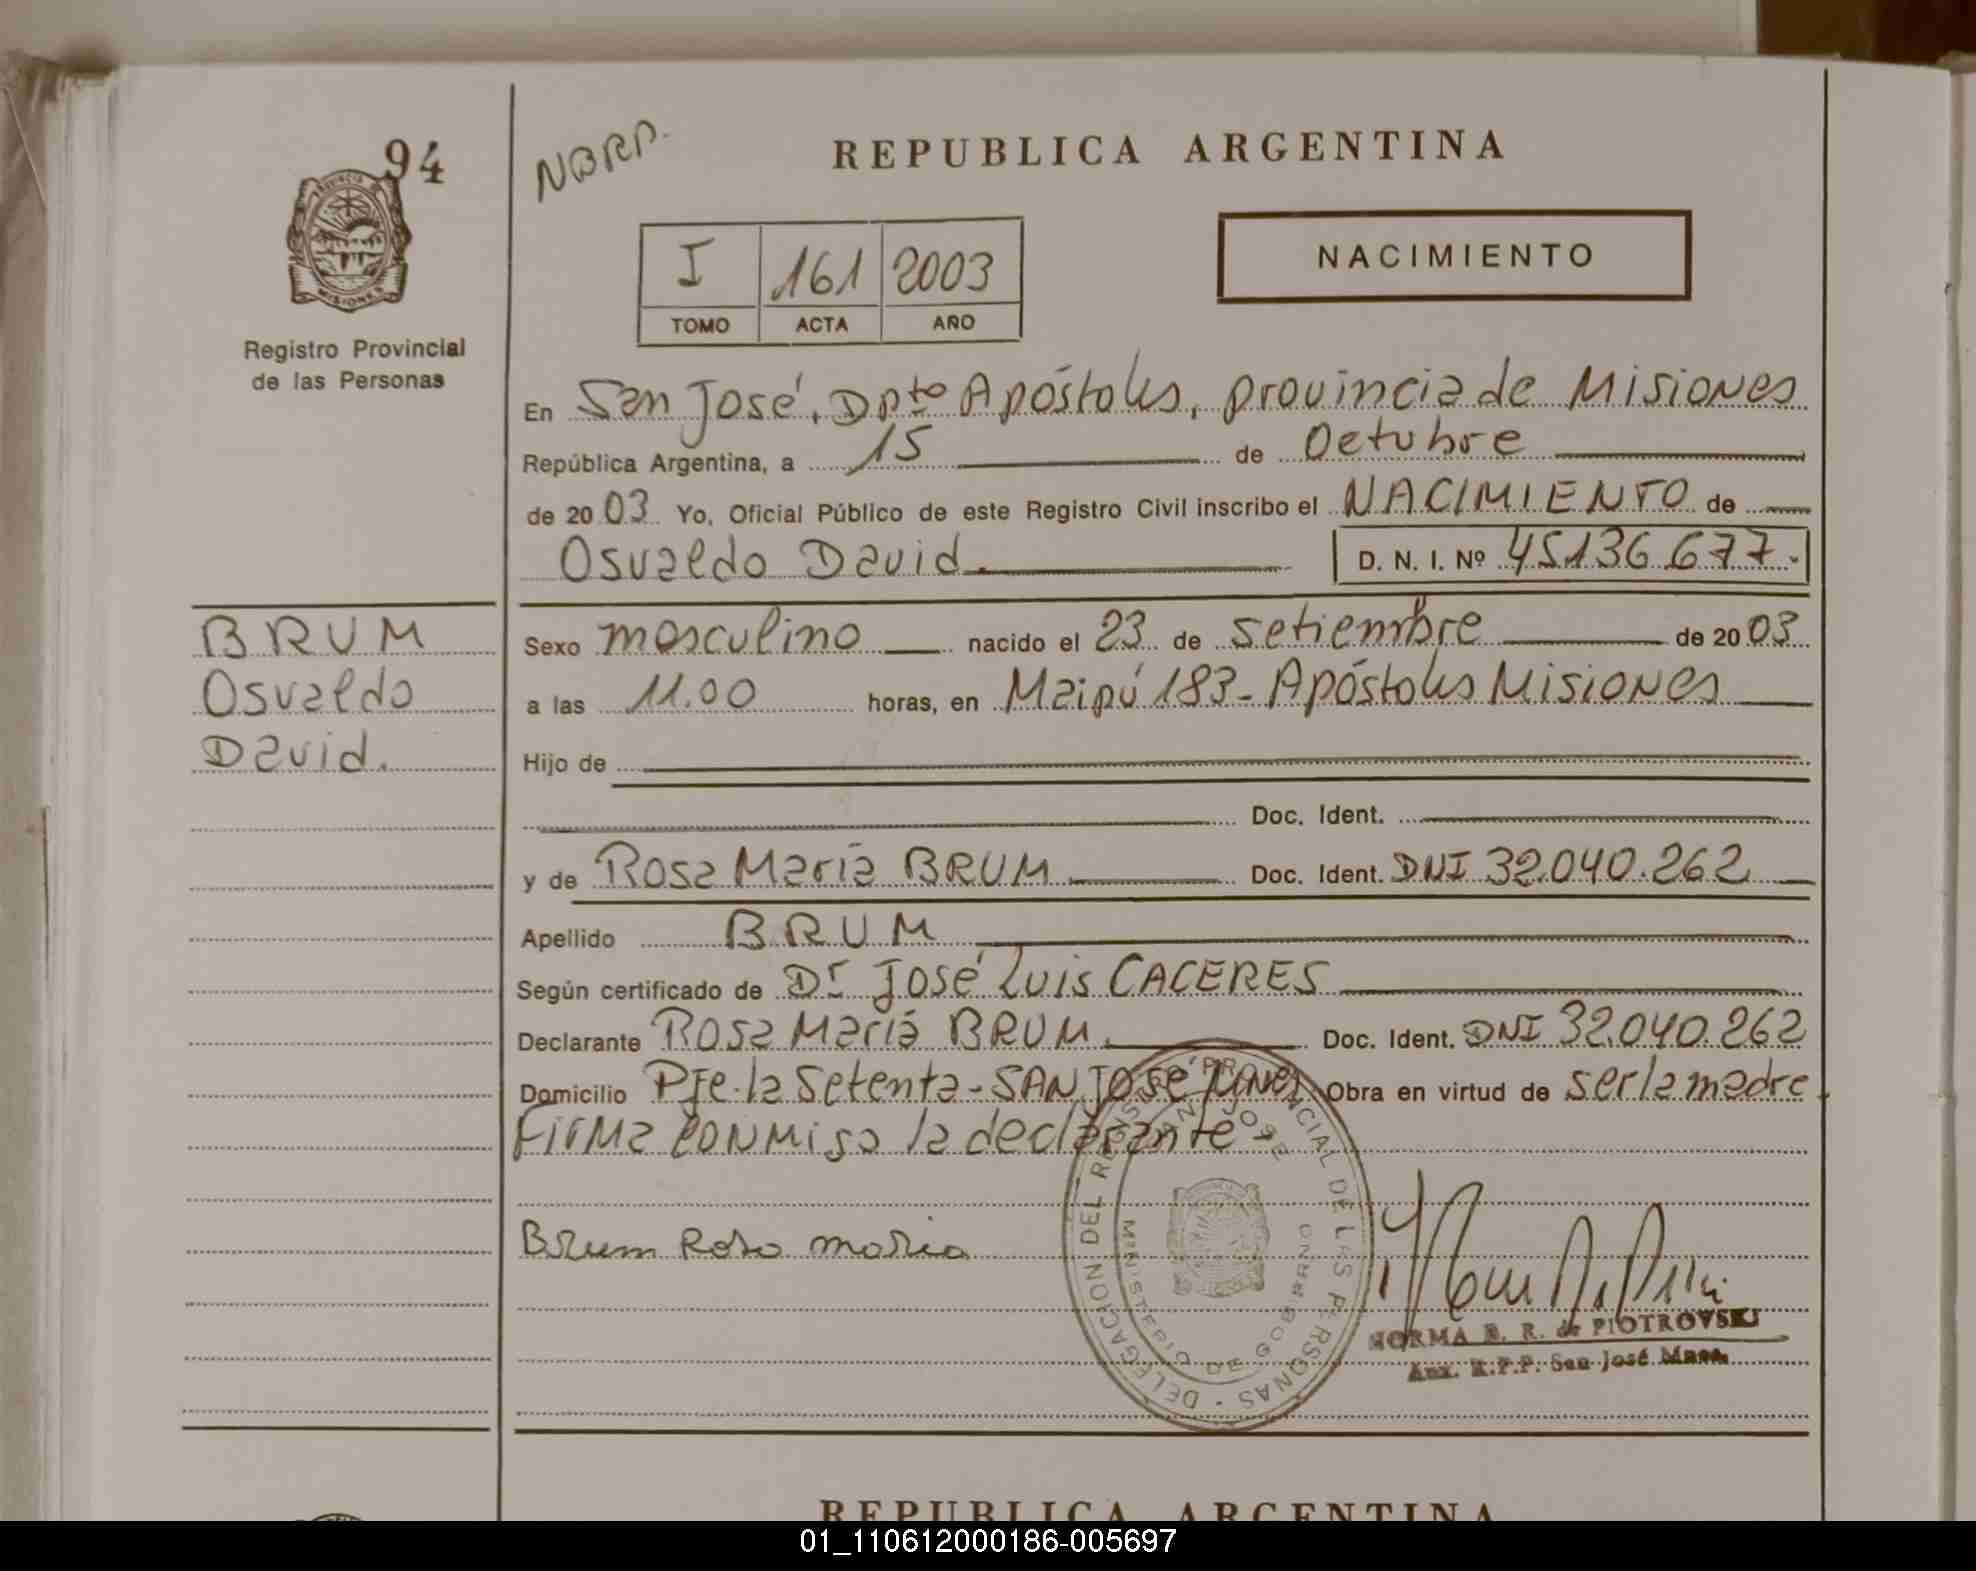 94
PROVINCIA DE
MISIONES
Registro Provincial
de las Personas
NBRP.
REPUBLICA ARGENTINA
I 161 2003
TOMO ACTA AÑO
NACIMIENTO
En San José, Dpto Apóstoles, provincia de Misiones
República Argentina, a 15 de Octubre
de 2003 Yo, Oficial Público de este Registro Civil inscribo el NACIMIENTO de
Osvaldo David. D. N. I. Nº 45136.677.-
BRUM
Osvaldo
David.
Sexo masculino nacido el 23 de setiembre de 2003
a las 11.00 horas, en Maipú 183 - Apóstoles Misiones
Hijo de
Doc. Ident.
y de Rosa María BRUM Doc. Ident. DNI 32.040.262
Apellido BRUM
Según certificado de Dr José Luis CACERES
Declarante Rosa María BRUM. Doc. Ident. DNI 32.040.262
Domicilio Pje. la Setenta - SAN JOSÉ Mnes Obra en virtud de ser la madre.
Firma conmigo la declarante -
Brum Rosa maria
DELEGACION DEL REGISTRO PROVINCIAL DE LAS PERSONAS -
SAN JOSE
MINISTERIO DE GOBIERNO
NORMA B. R. de PIOTROVSKI
Aux. R.P.P. San José Mnes.
REPUBLICA ARGENTINA
01_110612000186-005697